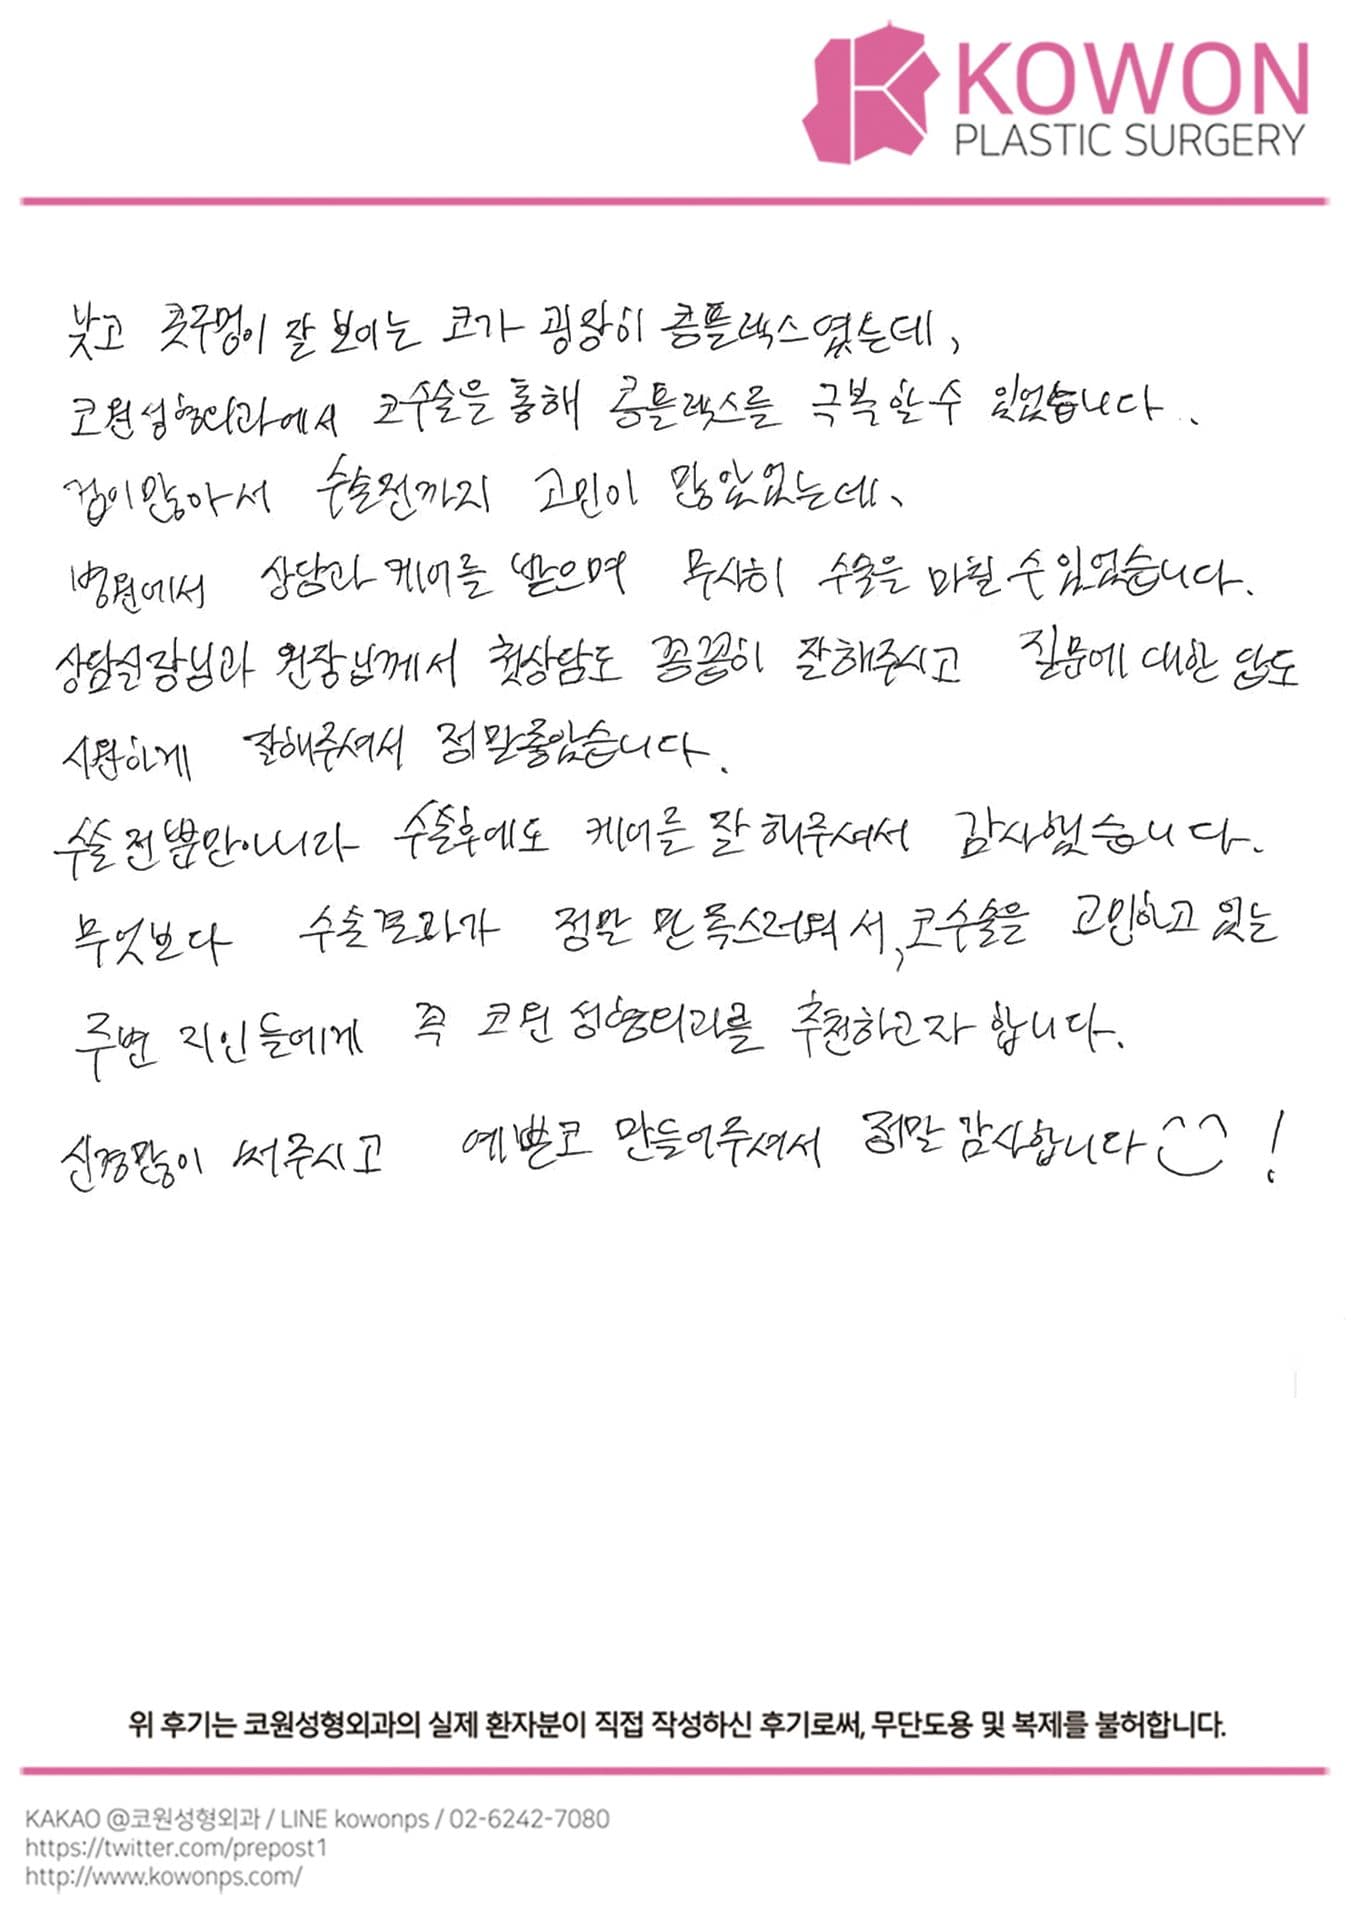 KOWON
PLASTIC SURGERY
낮고 콧구멍이 잘 보이는 코가 굉장히 콤플렉스였는데,
코원성형외과에서 코수술을 통해 콤플렉스를 극복할 수 있었습니다.
겁이많아서 수술전까지 고민이 많았었는데,
병원에서 상담과 케어를 받으며 무사히 수술을 마칠 수 있었습니다.
상담실장님과 원장님께서 첫상담도 꼼꼼히 잘해주시고 질문에 대한 답도
시원하게 잘해주셔서 정말좋았습니다.
수술전뿐만아니라 수술후에도 케어를 잘 해주셔서 감사했습니다.
무엇보다 수술결과가 정말 만족스러워서, 코수술을 고민하고 있는
주변 지인들에게 꼭 코원 성형외과를 추천하고자 합니다.
신경많이 써주시고 예쁜코 만들어주셔서 정말 감사합니다 !
위 후기는 코원성형외과의 실제 환자분이 직접 작성하신 후기로써, 무단도용 및 복제를 불허합니다.
KAKAO @코원성형외과 / LINE kowonps / 02-6242-7080
https://twitter.com/prepost1
http://www.kowonps.com/